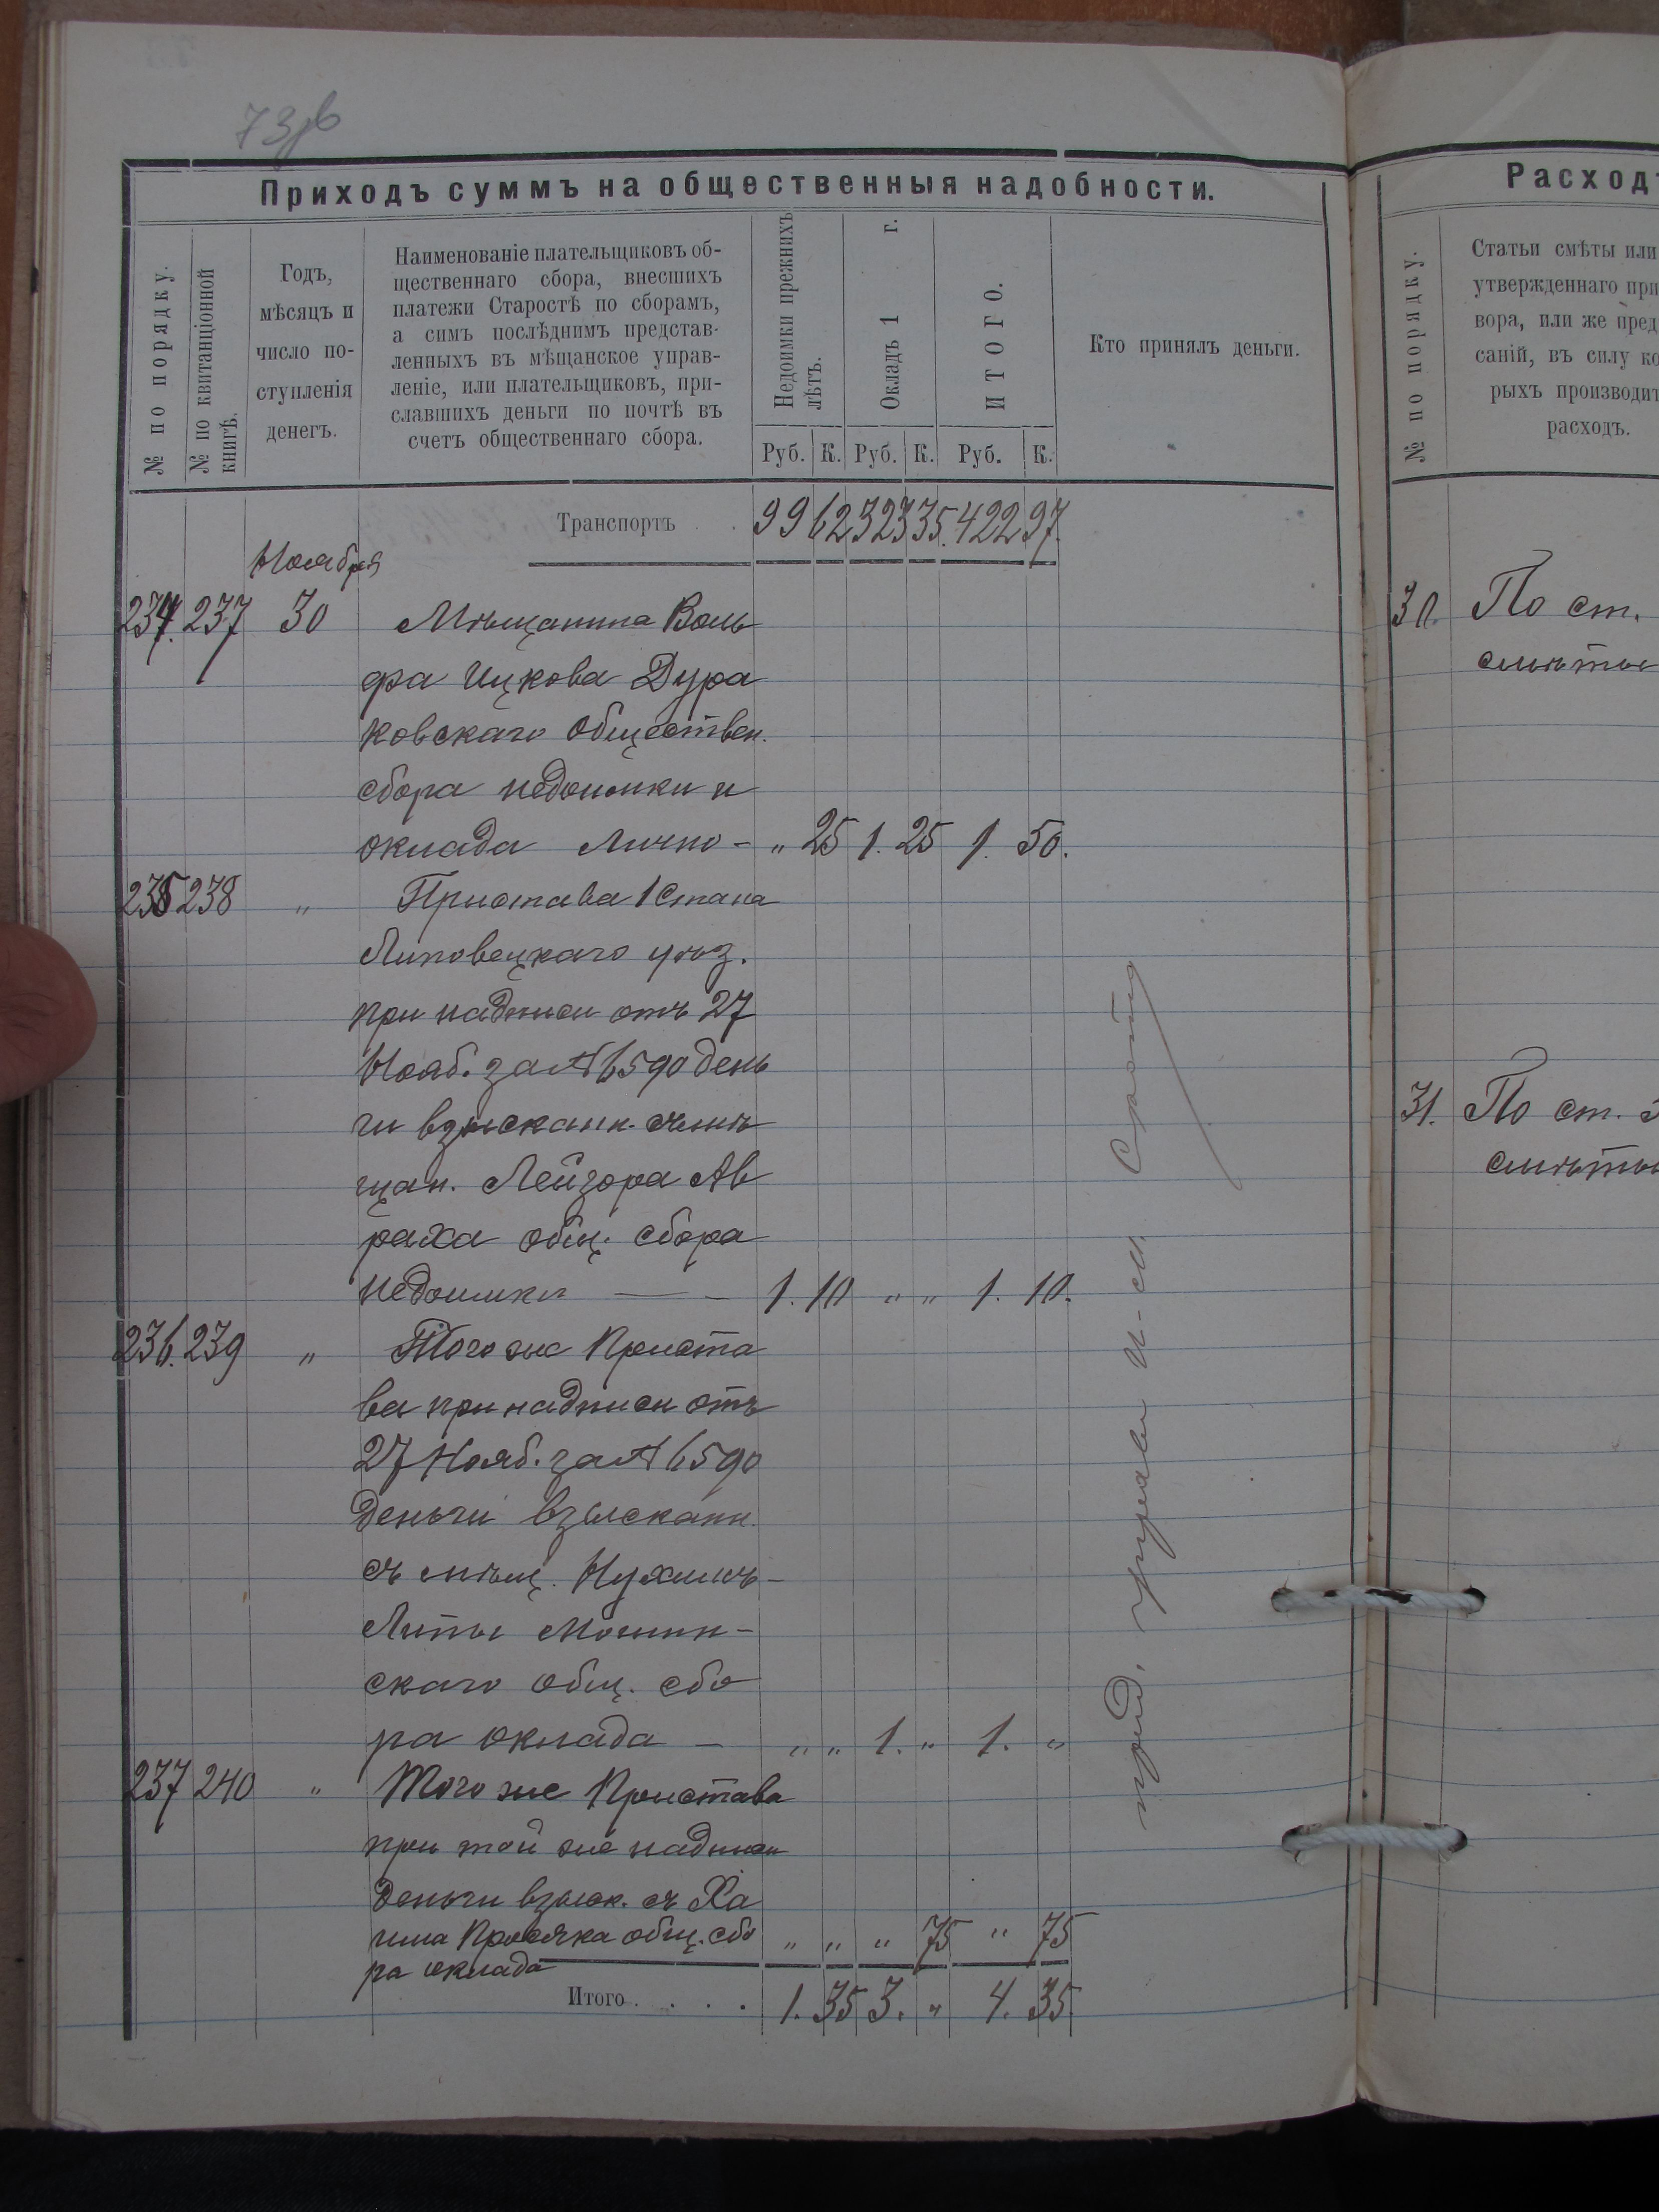 73об
Приходъ суммъ на общественныя надобности.
№ по порядку.
№ по квитанціонной книгѣ.
Годъ,
мѣсяцъ и
число по-
ступленія
денегъ.
Наименованіе плательщиковъ об-
щественнаго сбора, внесшихъ
платежи Старостѣ по сборамъ,
а симъ послѣднимъ представ-
ленныхъ въ мѣщанское управ-
леніе, или плательщиковъ, при-
славшихъ деньги по почтѣ въ
счетъ общественнаго сбора.
Недоимки прежнихъ лѣтъ.
Окладъ 1 г.
ИТОГО.
Кто принялъ деньги.
Руб. К. Руб. К. Руб. К.
Транспортъ . . 99 62 323 35. 422 97.
Ноября
234. 237 30 Мѣщанина Воль
фа Ицкова Дура
ковскаго Обществен.
сбора недоимки и
оклада Лично - " 25 1. 25 1. 50.
235 238 " Пристава 1 Стана
Липовецкаго уѣз.
при надписи отъ 27
Нояб. за № 6590 день
ги взысканн. съ мѣ
щан. Лейзора Ав
раха общ. сбора
недоимки — - 1. 10 " " 1. 10.
236. 239 " Того же Приста
ва при надписи отъ
27 Нояб. за № 6590
деньги взысканн.
съ мѣщ. Нухимъ-
Липы Мошин-
скаго общ. сбо
ра оклада - " " 1. " 1. "
237 240 " Того же Пристава
при той же надписи
деньги взыск. съ Ха
има Просяка общ. сбо " " " 75 " 75
ра оклада
Итого . . . . 1. 35 3. " 4. 35.
Расход
№ по порядку.
Статьи смѣты или
утвержденнаго при
вора, или же пред
саній, въ силу ко
рыхъ производит
расходъ.
30. По ст.
смѣты
31. По ст.
смѣты